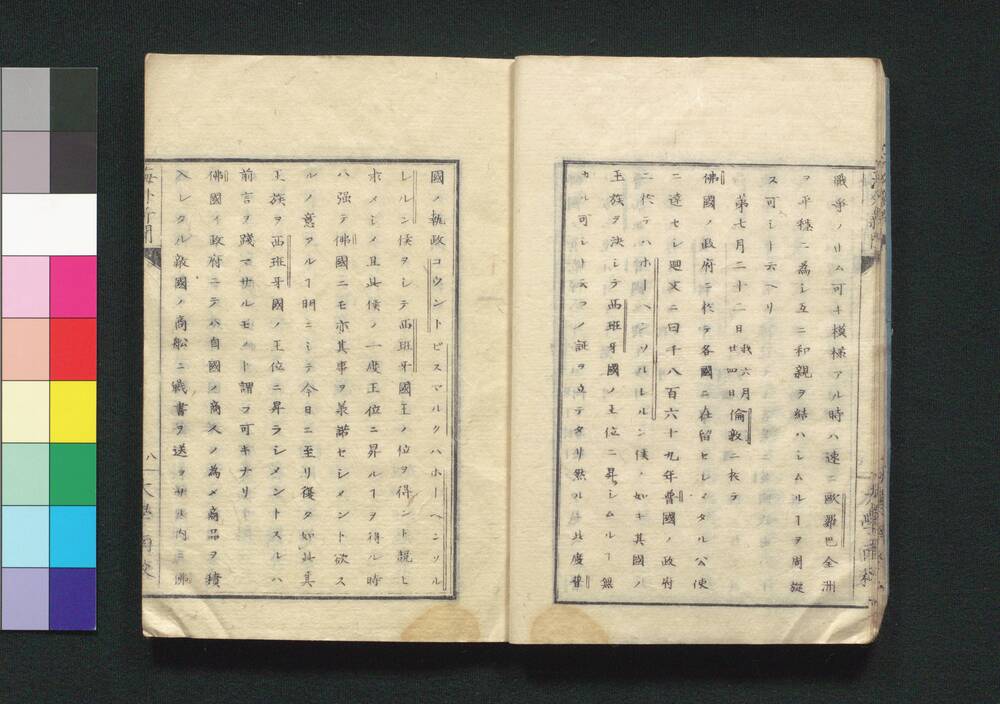 戰爭ノ止ム可キ模様アル時ハ速ニ歐羅巴全洲
ヲ平穏ニ為シ互ニ和親ヲ結ハシムルヿヲ周旋
ス可シト云ヘリ
第七月二十二日我六月廿四日倫敦ニ於テ
佛國ノ政府ニ於テ各國ニ在留セシメタル公使
ニ達セシ廻文ニ曰千八百六十九年普國ノ政府
ニ於テハホーヘンソルレルン侯ノ如キ其國ノ
王族ヲ决シテ西班牙國ノ王位ニ昇シムルヿ無
カル可シト云フノ証ヲ立テタリ然ルニ此度普
國ノ執政コウントビスマルクハホーヘンソル
レルン侯ヲシテ西班牙國王ノ位ヲ得ント説シ
求メシメ且此侯ノ一度王位ニ昇ルヿヲ得ル時
ハ强テ佛國ニモ亦其事ヲ承諾セシメント欲ス
ルノ意アルヿ明ニシテ今日ニ至リ復タ如此其
王族ヲ西班牙國ノ王位ニ昇ラシメントスルハ
前言ヲ踐マサルモノト謂フ可キナリ
佛國ノ政府ニテハ自國ノ商人ノ為メ商品ヲ積
入レタル敵國ノ商舩ニ戰書ヲ送ラサル内ニ佛
海外新聞
八
大學南校